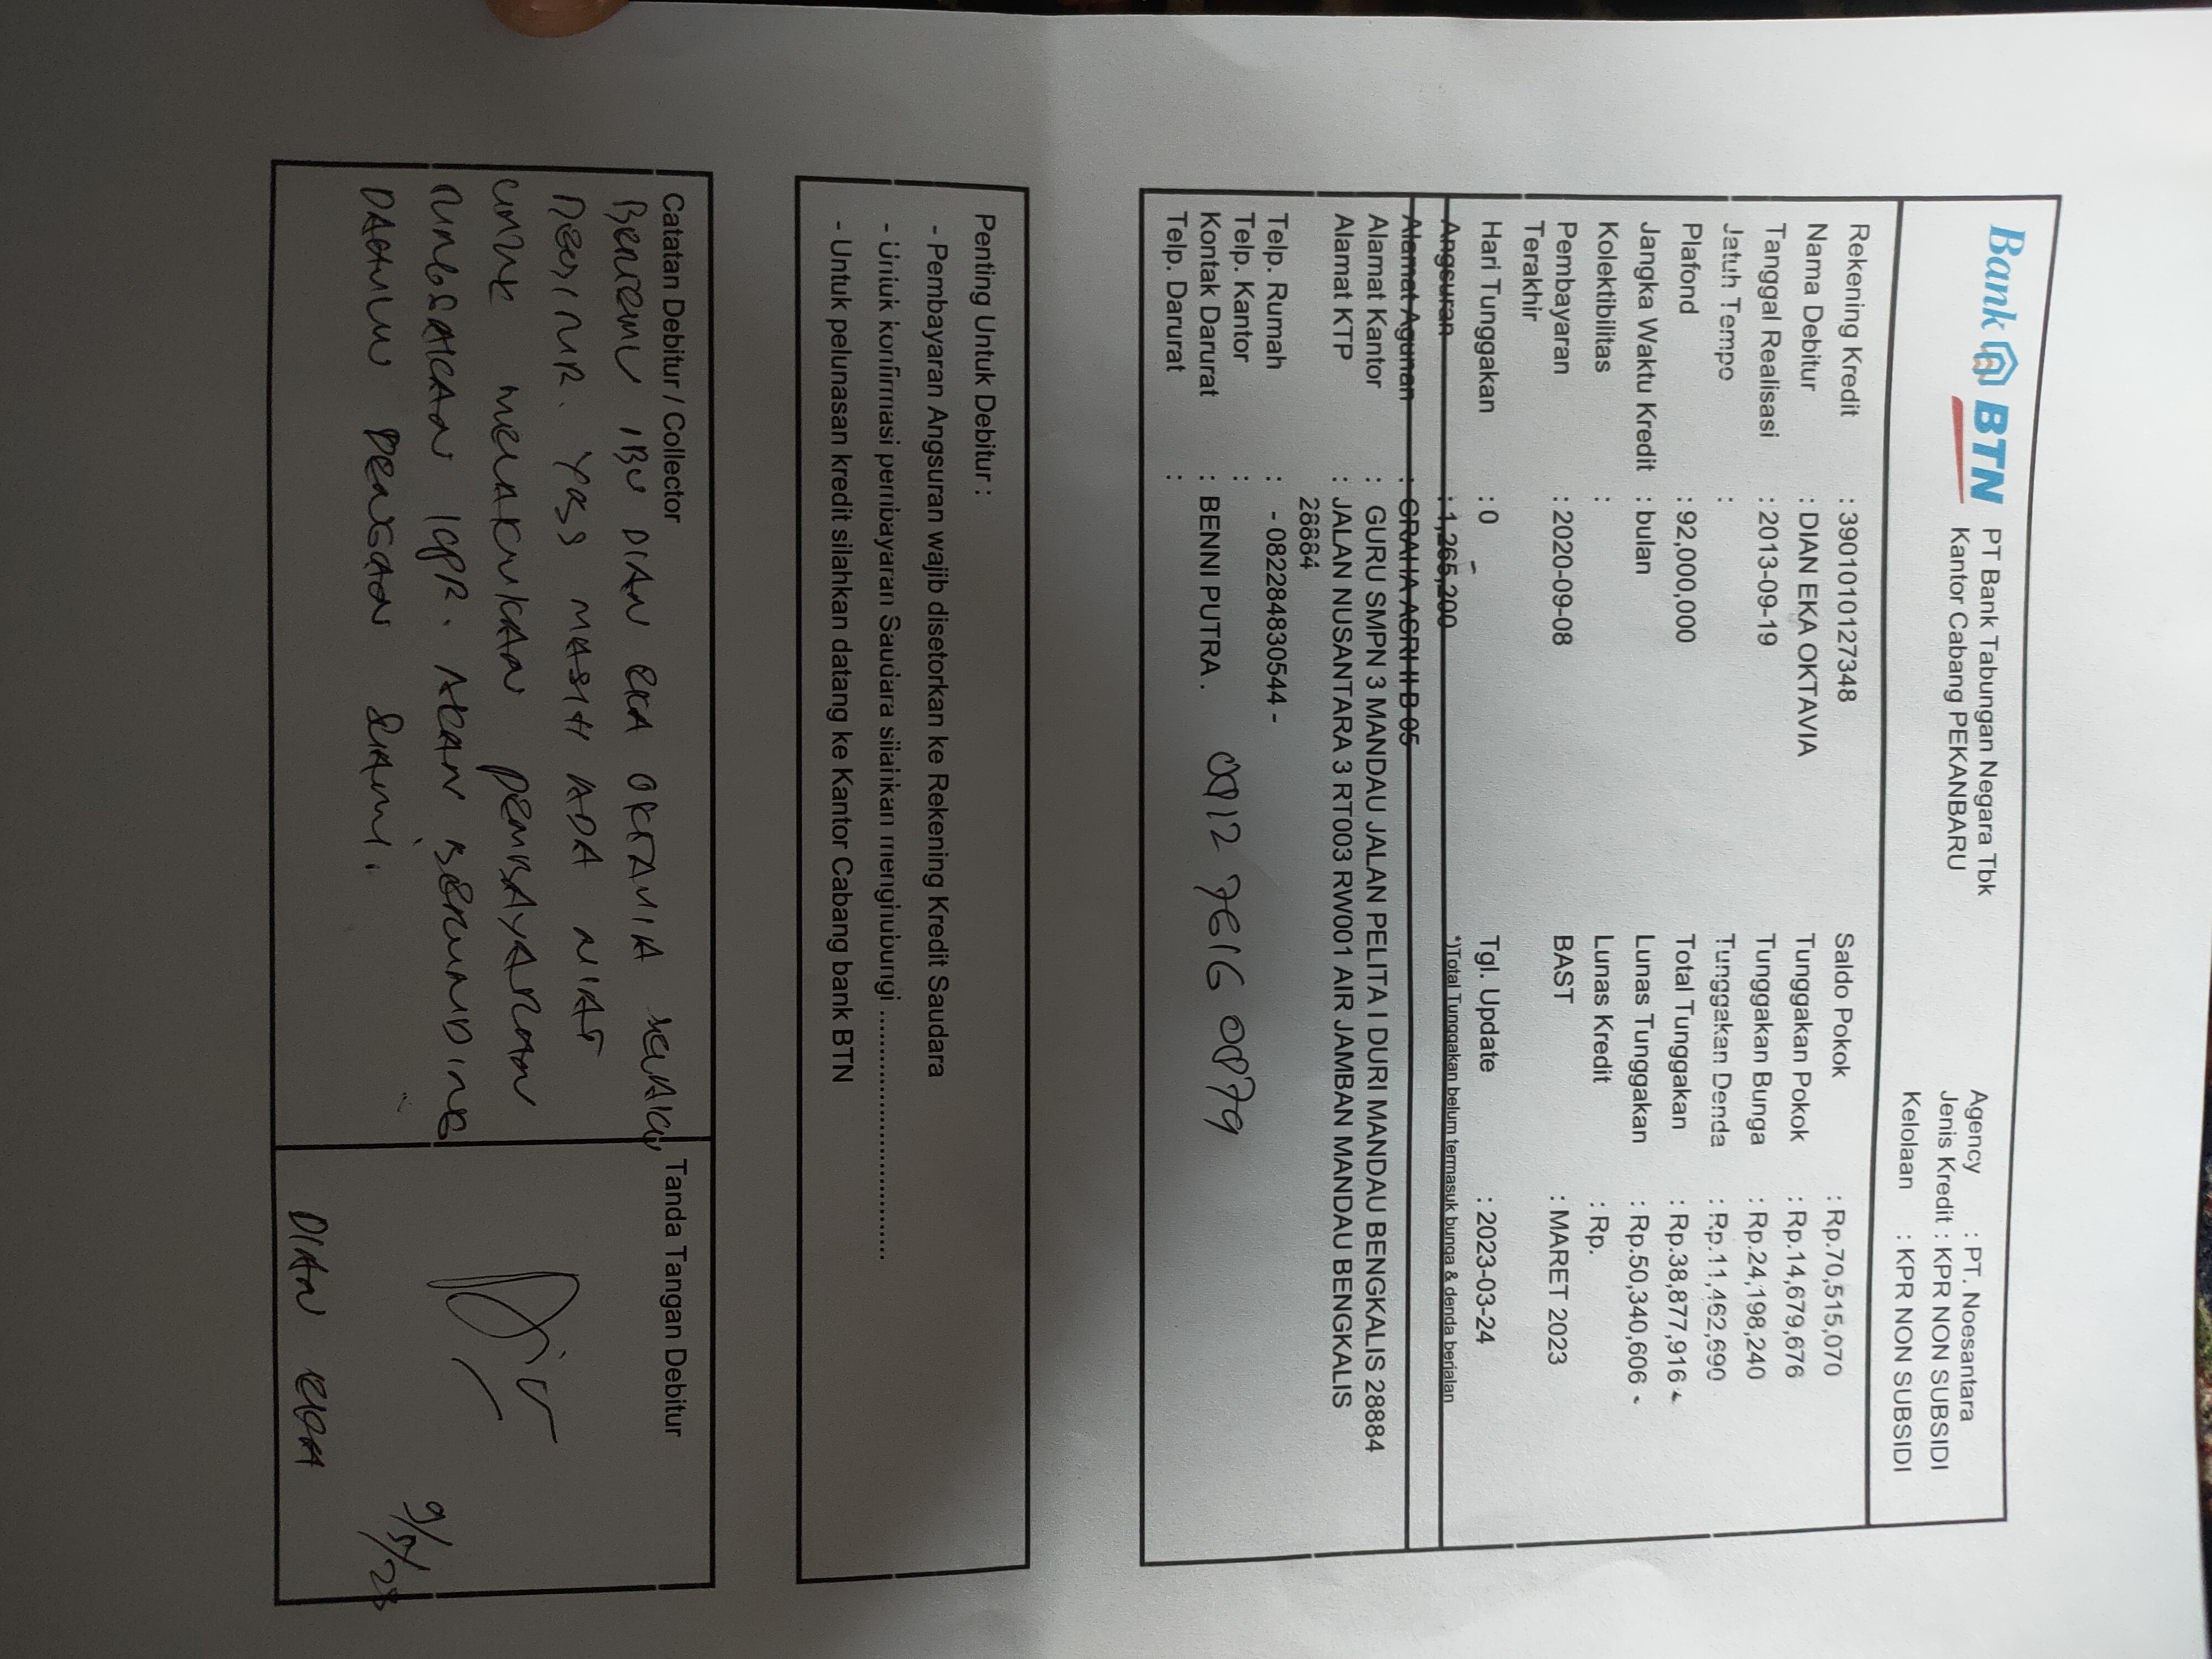 Bank BTN
PT Bank Tabungan Negara Tbk
Kantor Cabang PEKANBARU
Agency : PT. Noesantara
Jenis Kredit : KPR NON SUBSIDI
Kelolaan : KPR NON SUBSIDI
Rekening Kredit : 3901010127348
Nama Debitur : DIAN EKA OKTAVIA
Tanggal Realisasi : 2013-09-19
Jatuh Tempo :
Plafond : 92,000,000
Jangka Waktu Kredit : bulan
Kolektibilitas :
Pembayaran Terakhir : 2020-09-08
Hari Tunggakan : 0
Angsuran : 1,265,200
Saldo Pokok : Rp.70,515,070
Tunggakan Pokok : Rp.14,679,676
Tunggakan Bunga : Rp.24,198,240
Tunggakan Denda : Rp.11,462,690
Total Tunggakan : Rp.38,877,916
Lunas Tunggakan : Rp.50,340,606
Lunas Kredit : Rp.
BAST : MARET 2023
Tgl. Update : 2023-03-24
*)Total Tunggakan belum termasuk bunga & denda berjalan
Alamat Agunan : GRAHA ASRI II B 05
Alamat Kantor : GURU SMPN 3 MANDAU JALAN PELITA I DURI MANDAU BENGKALIS 28884
Alamat KTP : JALAN NUSANTARA 3 RT003 RW001 AIR JAMBAN MANDAU BENGKALIS
28884
Telp. Rumah : - 082284830544 -
Telp. Kantor :
Kontak Darurat : BENNI PUTRA. 0812 7616 0879
Telp. Darurat :
Penting Untuk Debitur :
- Pembayaran Angsuran wajib disetorkan ke Rekening Kredit Saudara
- Untuk konfirmasi pembayaran Saudara silahkan menghubungi ..............................
- Untuk pelunasan kredit silahkan datang ke Kantor Cabang bank BTN
Catatan Debitur / Collector
BERTEMU IBU DIAN EKA OKTAVIA SELAKU
DEBITUR. YBS MASIH ADA NIAT
UNTUK MELAKUKAN PEMBAYARAN
TUNGGAKAN KPR. AKAN BERUNDING
DAHULU DENGAN SUAMI.
Tanda Tangan Debitur
9/5/23
DIAN EKA